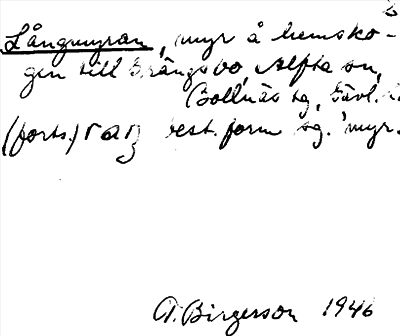 Långmyran, myr å hemsko-
gen till Grängsbo, Alfta sn,
Bollnäs tg, Gävl.
(forts.) ran best. form sg. 'myr.
T. Birgerson 1946